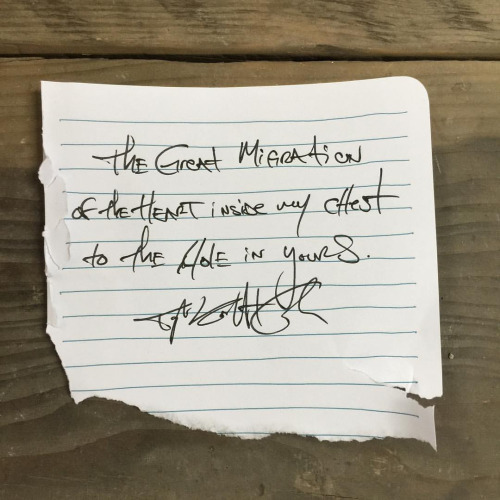 the Great Migration
of the Heart inside my chest
to the Hole in yours.